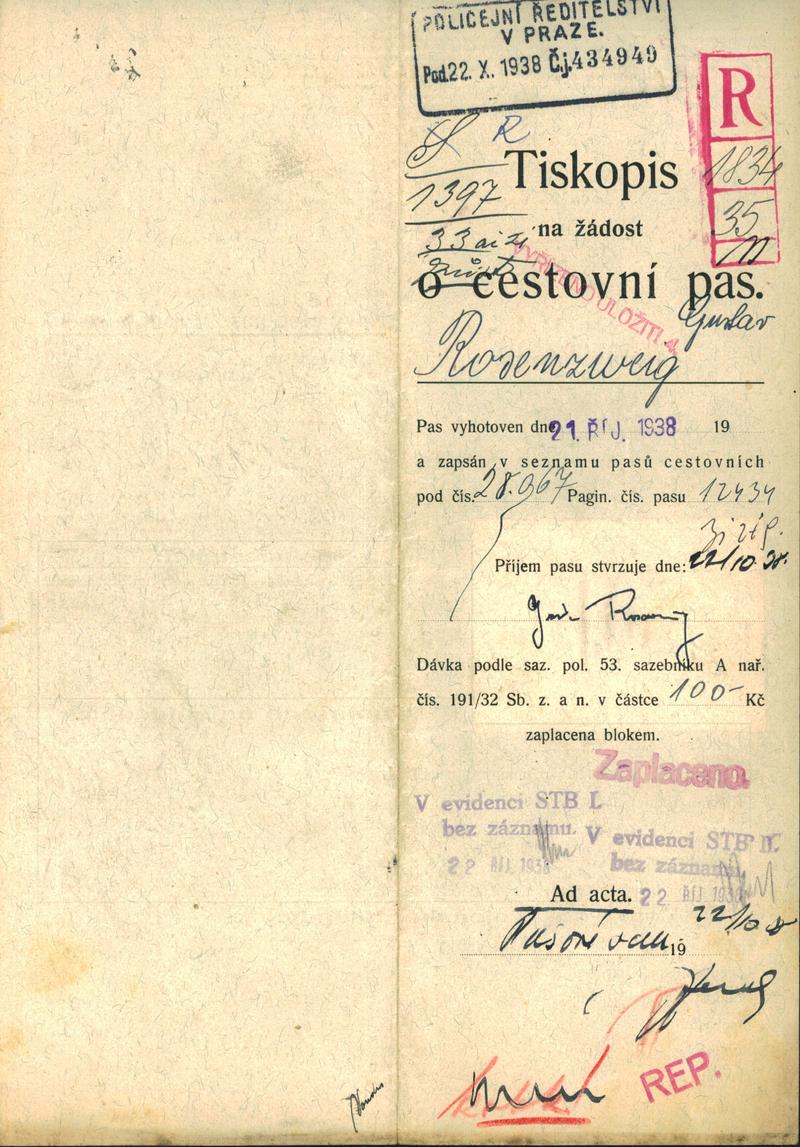 POLICEJNÍ ŘEDITELSTVÍ
V PRAZE.
Pod. 22. X. 1938 Č.j. 434949
R
1834
35
R
1397
33
Tiskopis
na žádost
o cestovní pas.
VYŘÍZENO ULOŽITI
Gustav
Rosenzweig
Pas vyhotoven dne 21. ŘÍJ. 1938 19
a zapsán v seznamu pasů cestovních
pod čís. 28.967 Pagin. čís. pasu 12434
Příjem pasu stvrzuje dne: 22/10 38.
Dávka podle saz. pol. 53. sazebníku A nař.
čís. 191/32 Sb. z. a n. v částce 100- Kč
zaplacena blokem.
Zaplaceno.
V evidenci STB I.
bez záznamu.
22 ŘÍJ 1938
V evidenci STB II.
bez záznamu
22 ŘÍJ 1938
Ad acta.
22/10 8
19
REP.